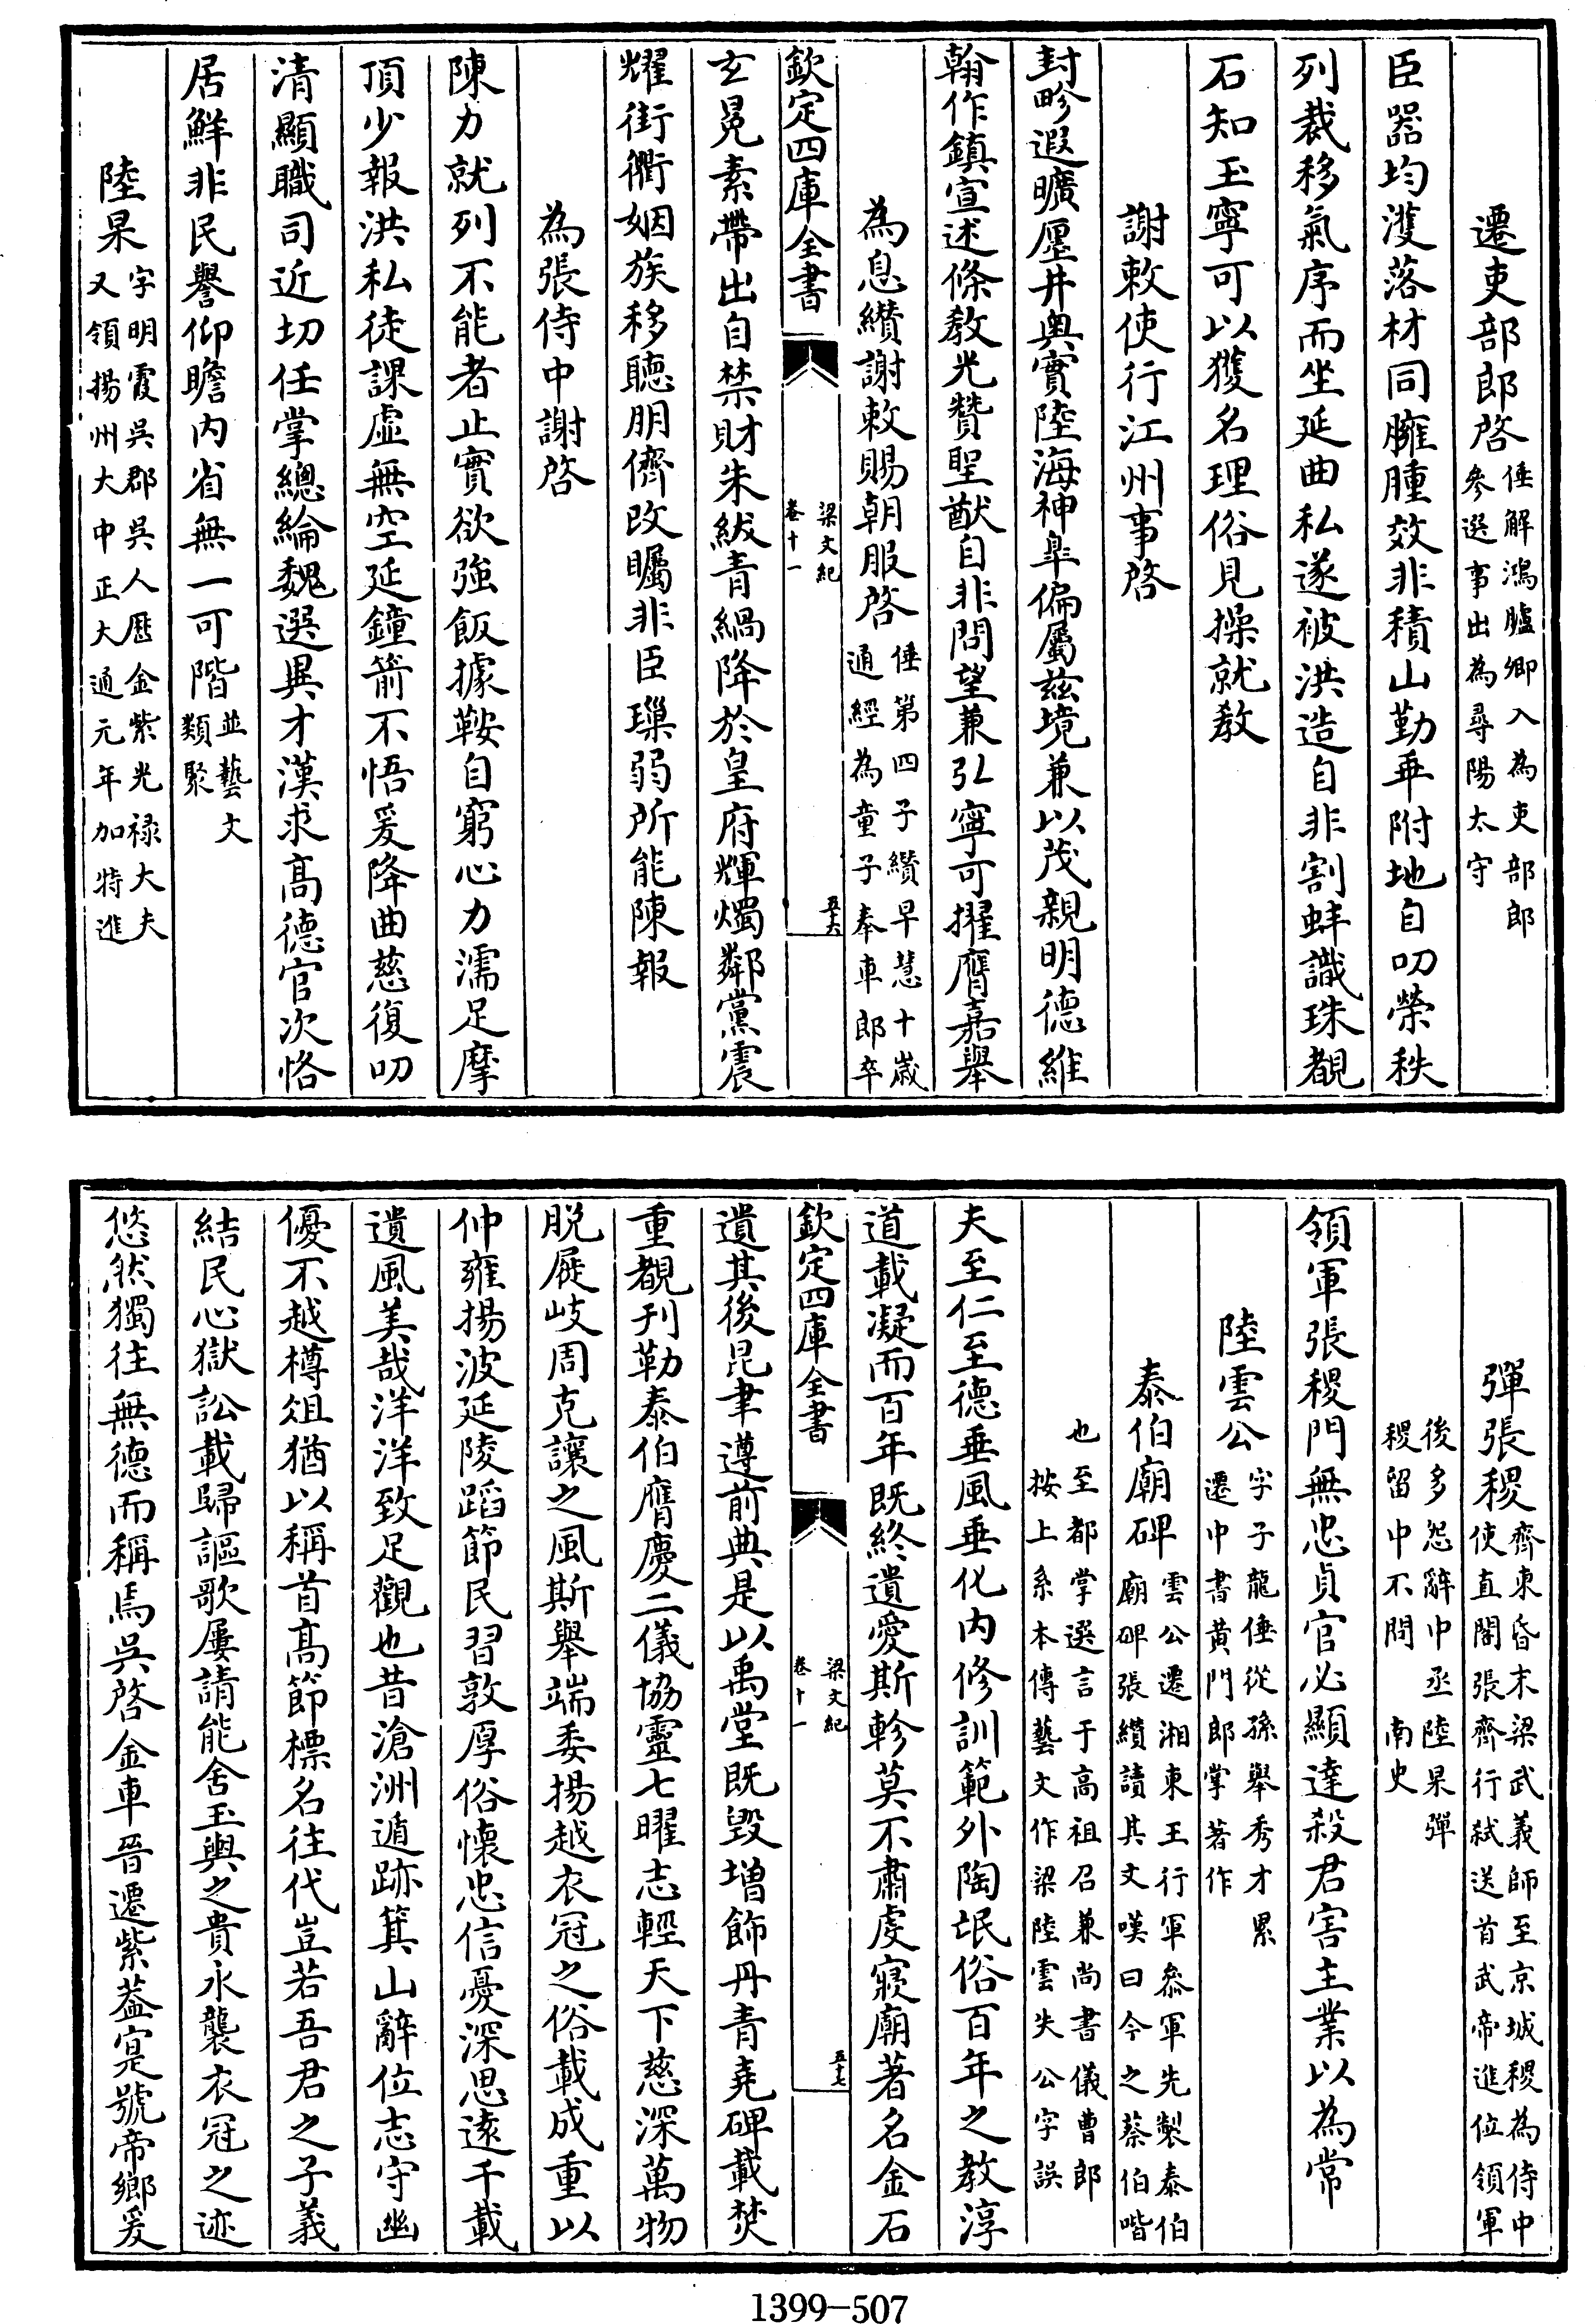 遷吏部郎啓倕解鴻臚卿入為吏部郎
參選事出為尋陽太守
臣器均濩落材同臃腫效非積山勤乖附地自叨榮秩
列裁移氣序而坐延曲私遂被洪造自非割蚌識珠覩
石知玉寧可以獲名理俗見操就教
謝敕使行江州事啓
封畛遐曠壓井輿實陸海神臯偏屬兹境兼以茂親明德維
翰作鎮宣述條教光贊聖猷自非問望兼弘寧可擢膺嘉舉
為息纉謝敕賜朝服啓倕第四子纉早慧十歲
通經為童子奉車郎卒
欽定四庫全書
梁文紀
卷十一
五十六
玄冕素帶出自禁財朱紱青緺降於皇府輝燭鄰黨震
耀街衢姻族移聽朋儕改矚非臣璅弱所能陳報
為張侍中謝啓
陳力就列不能者止實欲強飯據鞍自窮心力濡足摩
頂少報洪私徒課虛無空延鐘箭不悟爰降曲慈復叨
清顯職司近切任掌總綸魏選異才漢求高德官次恪
居鮮非民譽仰瞻内省無一可階並藝文
類聚
陸杲字明霞吳郡吳人歷金紫光祿大夫
又領揚州大中正大通元年加特進
彈張稷齊東昏末梁武義師至京城稷為侍中
使直閣張齊行弑送首武帝進位領軍
後多怨辭中丞陸杲彈
稷留中不問 南史
領軍張稷門無忠貞官必顯達殺君害主業以為常
陸雲公字子龍倕從孫舉秀才累
遷中書黃門郎掌著作
泰伯廟碑雲公遷湘東王行軍叅軍先製泰伯
廟碑張纘讀其文嘆曰今之蔡伯喈
也至都掌選言于高祖召兼尚書儀曹郎
按上系本傳藝文作梁陸雲失公字誤
夫至仁至德垂風垂化内修訓範外陶氓俗百年之教淳
道載凝而百年既終遺愛斯軫莫不肅虔寢廟著名金石
欽定四庫全書
梁文紀
卷十一
五十七
遺其後昆聿遵前典是以禹堂既毀增飾丹青堯碑載焚
重覩刊勒泰伯膺慶二儀協靈七曜志輕天下慈深萬物
脱屣岐周克讓之風斯舉端委揚越衣冠之俗載成重以
仲雍揚波延陵蹈節民習敦厚俗懷忠信憂深思遠千載
遺風美哉洋洋致足觀也昔滄洲遁跡箕山辭位志守幽
優不越樽俎猶以稱首高節標名往代豈若吾君之子義
結民心獄訟載歸謳歌屢請能舍玉輿之貴永襲衣冠之迹
悠然獨往無德而稱焉吳啓金車晉遷紫葢寔號帝鄉爰
1399-507